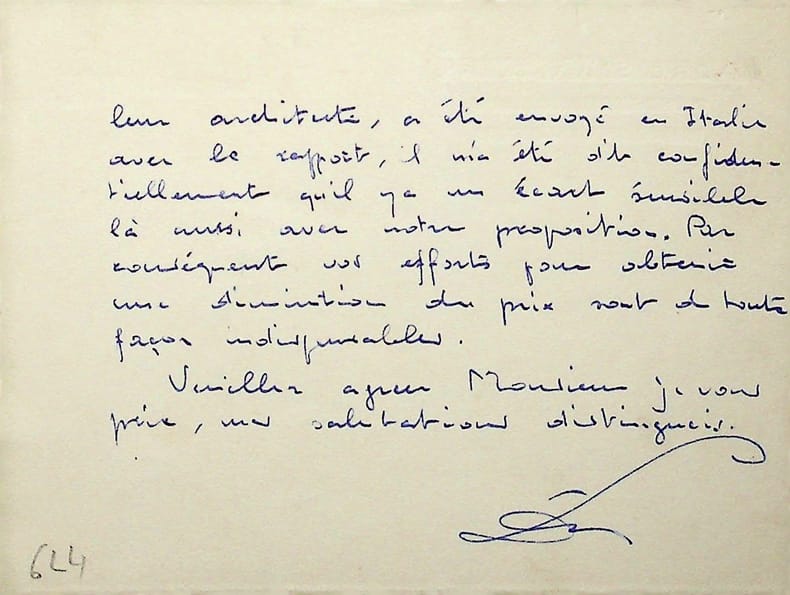 leur architecte, a été envoyé en Italie
avec le rapport, il m'a été dit confiden-
tiellement qu'il y a un écart sensible
là aussi avec notre proposition. Par
conséquent vos efforts pour obtenir
une diminution du prix sont de toute
façon indispensables.
Veuillez agréer Monsieur je vous
prie, mes salutations distinguées.
644